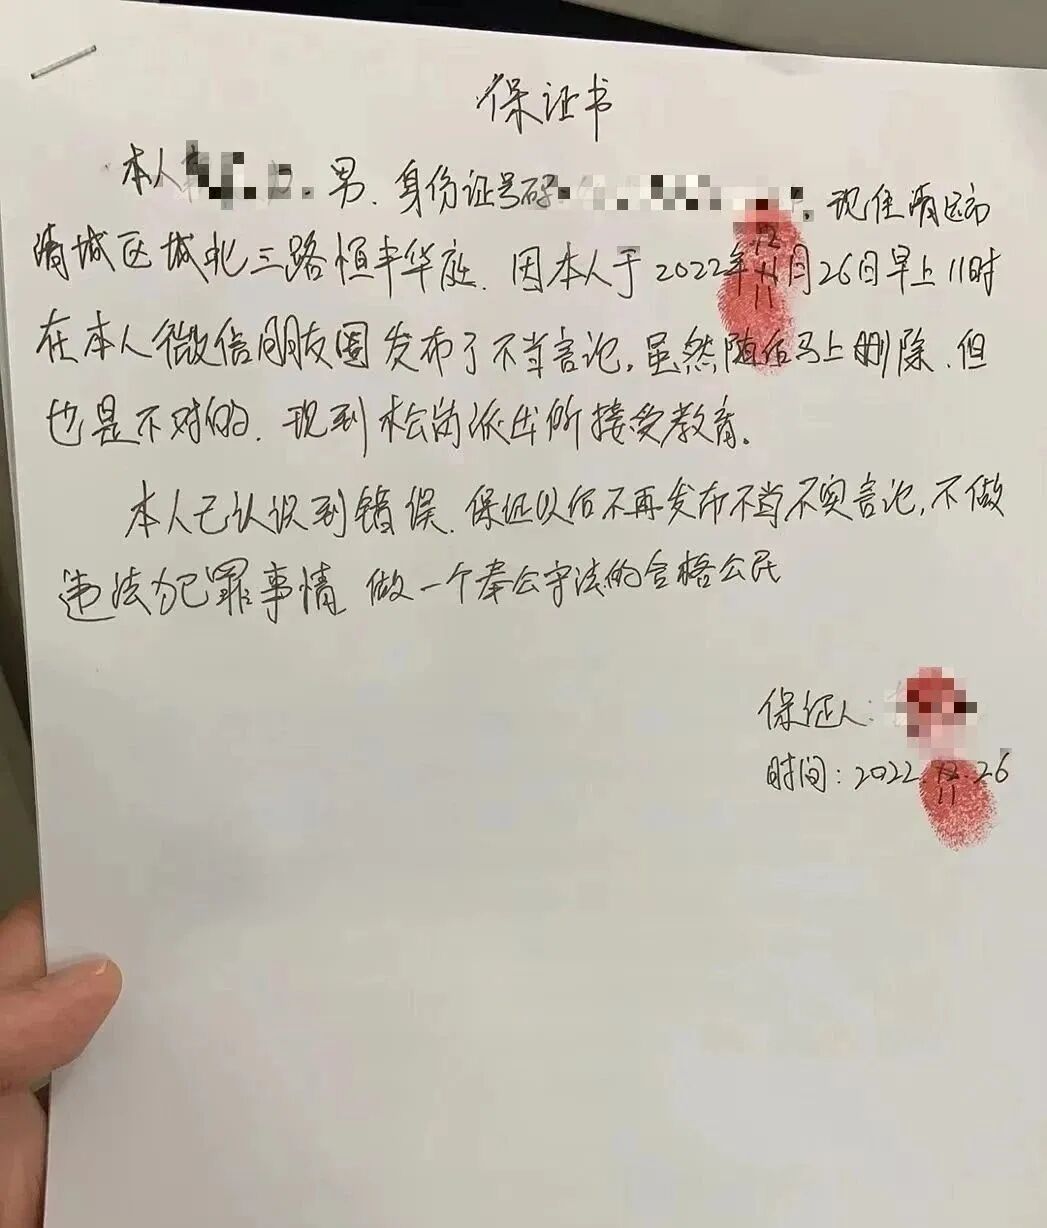 保证书
本人 男.身份证号码 .现住清远市
清城区城北三路恒丰华庭.因本人于2022年11月26日早上11时
在本人微信朋友圈发布了不当言论,虽然随后马上删除.但
也是不对的.现到松岗派出所接受教育.
本人已认识到错误.保证以后不再发布不当不实言论,不做
违法犯罪事情 做一个奉公守法的合格公民
保证人:
时间:2022.11.26